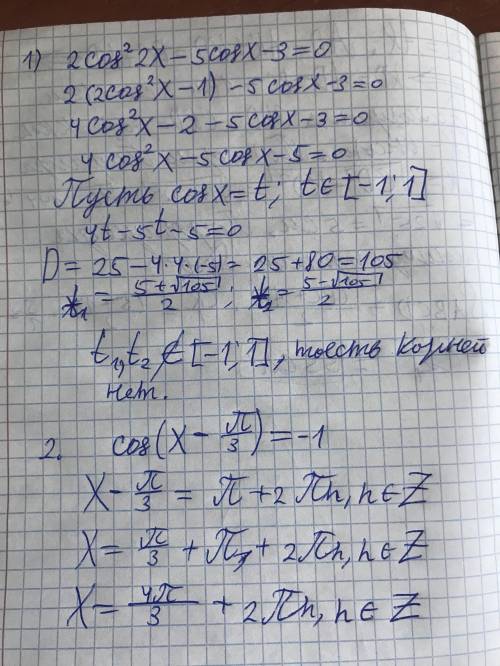 1) 2cos²2x-5cosx-3=0
2(2cos²x-1)-5cosx-3=0
4cos²x-2-5cosx-3=0
4cos²x-5cosx-5=0
Пусть cosx=t; t∈[-1;1]
4t-5t-5=0
D=25-4·4·(-5)=25+80=105
t₁=(5+√105)/2; t₂=(5-√105)/2
t₁,t₂∉[-1;1], тоесть корней
нет.
2. cos(x-π/3)=-1
x-π/3=π+2πn, n∈Z
x=π/3+π+2πn, n∈Z
x=4π/3+2πn, n∈Z